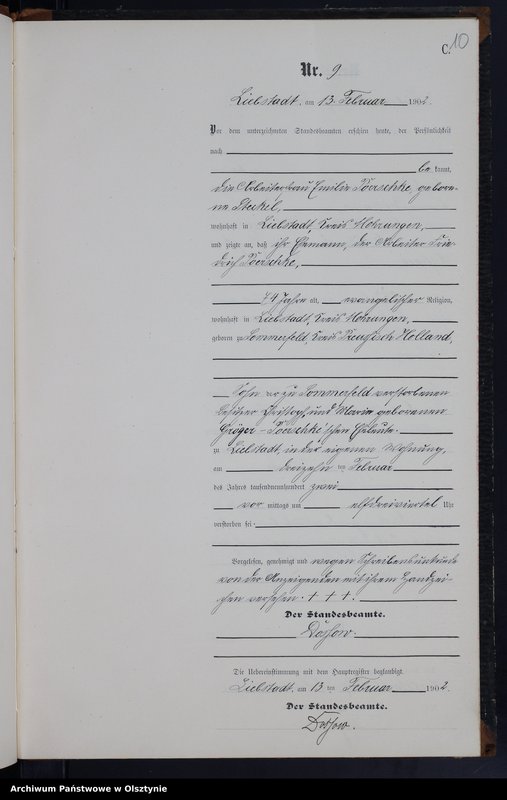 C. 10
Nr. 9
Liebstadt, am 13 Februar 1902.
Vor dem unterzeichneten Standesbeamten erschien heute, der Persönlichkeit
nach
be kannt,
die Arbeiterfrau Emilie Poerschke, gebore-
ne Steckel,
wohnhaft in Liebstadt, Kreis Mohrungen,
und zeigte an, daß ihr Ehemann, der Arbeiter Frie-
drich Poerschke,
74 Jahre alt, evangelischer Religion,
wohnhaft in Liebstadt, Kreis Mohrungen,
geboren zu Sommerfeld, Kreis Preußisch Holland,
Sohn der zu Sommerfeld verstorbenen
Besitzer Christoph und Maria geborenen
Poerschke'schen Eheleute.
zu Liebstadt, in der eigenen Wohnung,
am dreizehn ten Februar
des Jahres tausendneunhundert zwei
vor mittags um elf dreiviertel Uhr
verstorben sei.
Vorgelesen, genehmigt und wegen Schreibensunkunde
von der Anzeigenden mit ihrem Handzei-
chen versehen. + + +.
Der Standesbeamte.
Die Uebereinstimmung mit dem Hauptregister beglaubigt.
Liebstadt, am 13 ten Februar 1902.
Der Standesbeamte.
Archiwum Państwowe w Olsztynie